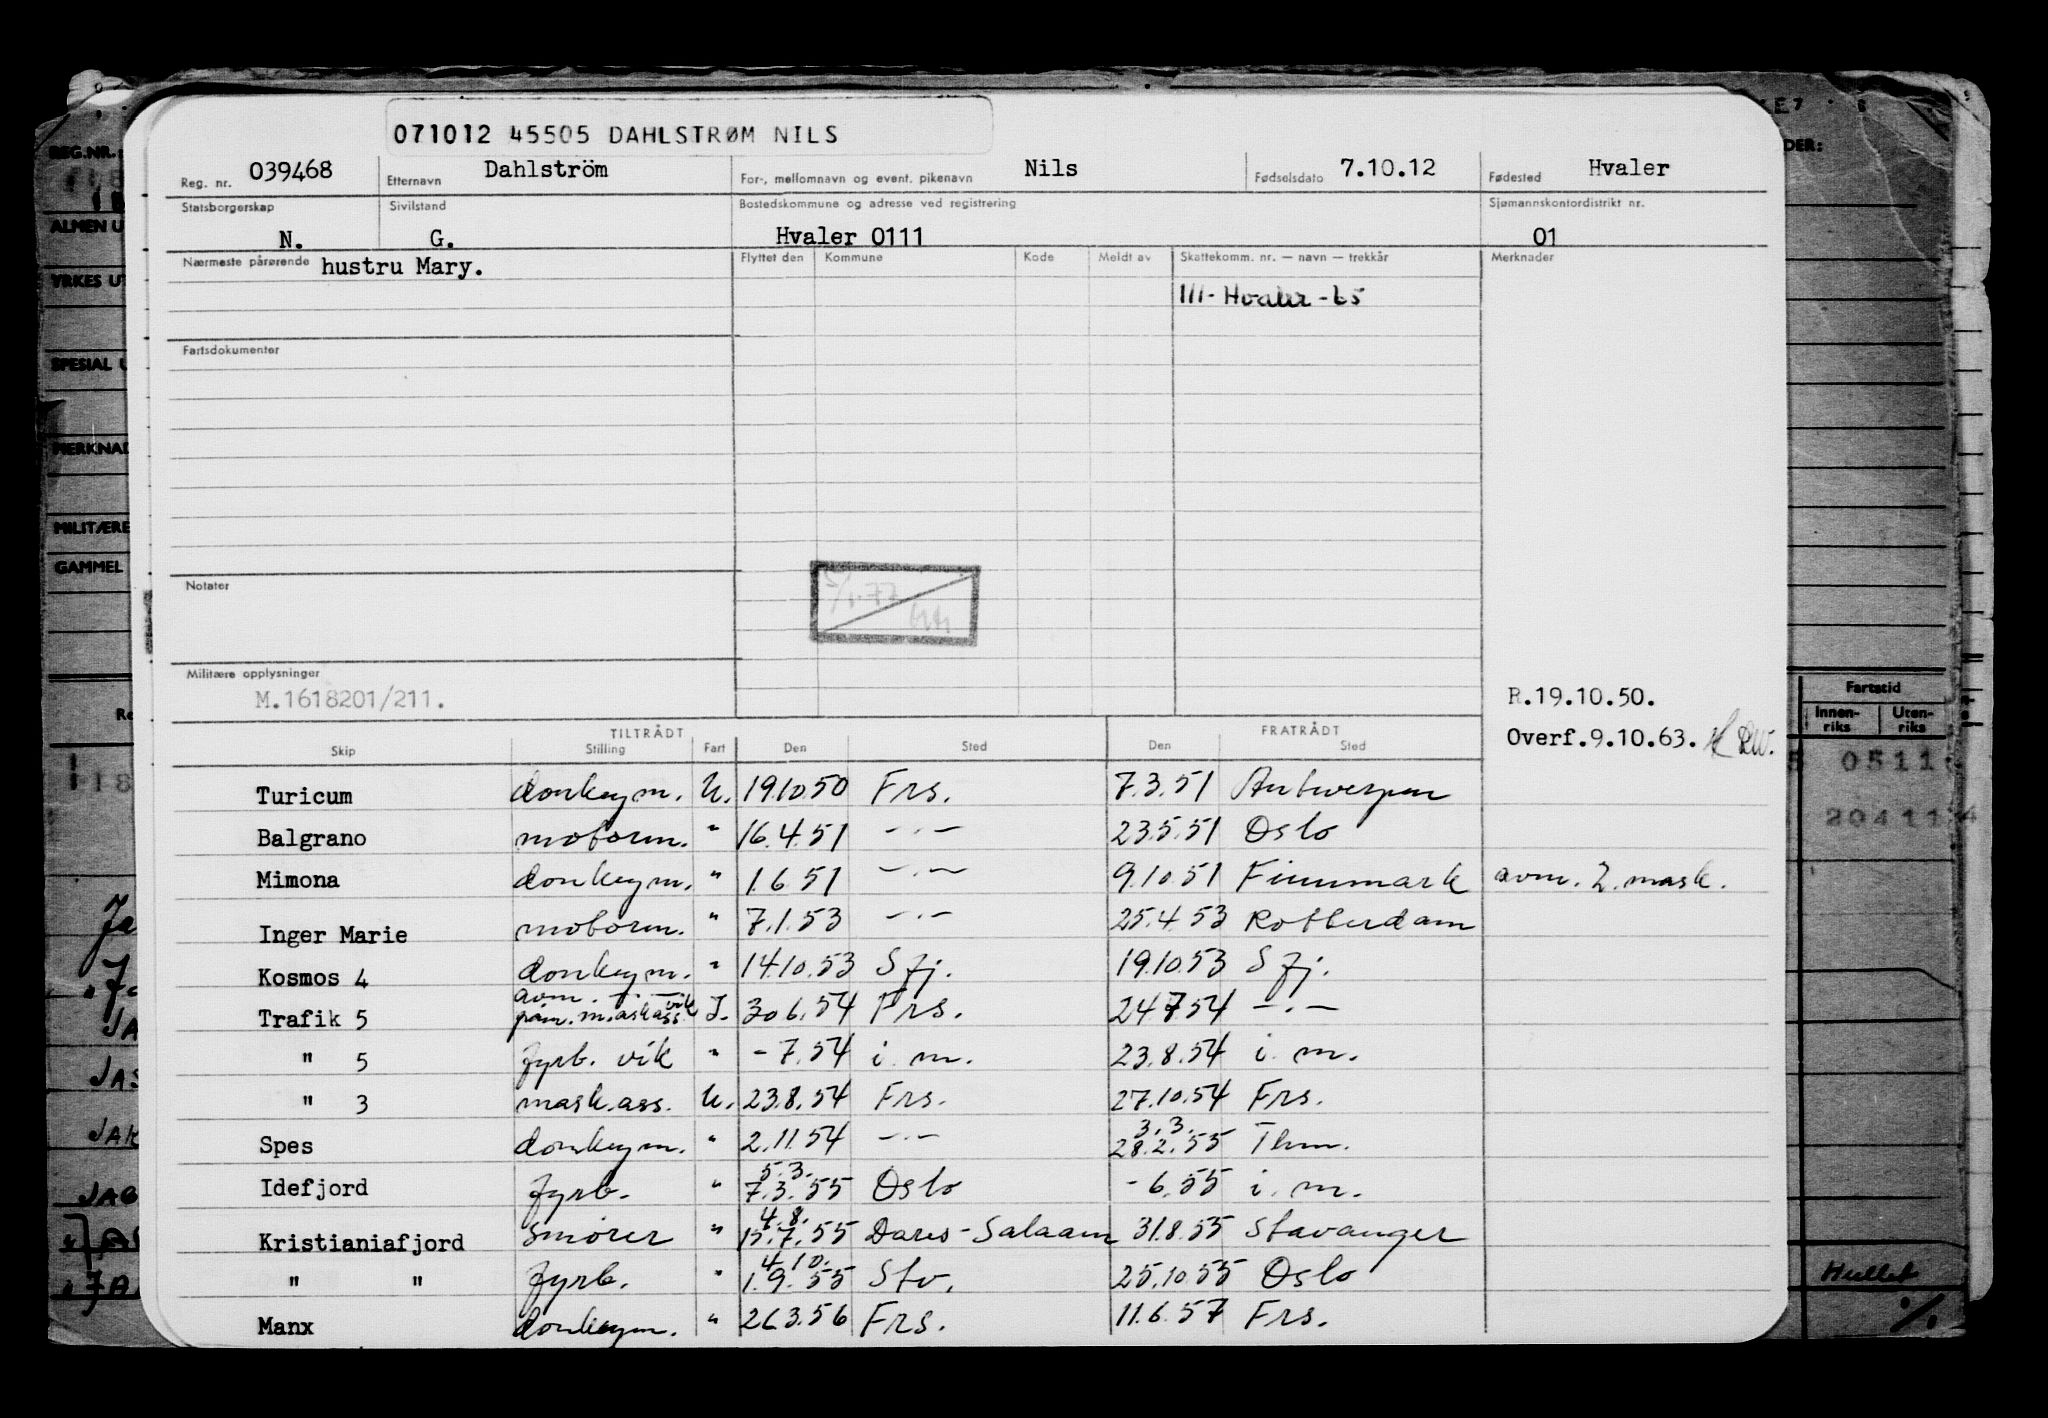 071012 45505 DAHLSTRØM NILS
Reg. nr. 039468 Etternavn Dahlström For-, mellomnavn og event. pikenavn Nils Fødselsdato 7.10.12 Fødested Hvaler
Statsborgerskap N. Sivilstand G. Bostedskommune og adresse ved registrering Hvaler 0111 Sjømannskontordistrikt nr. 01
Nærmeste pårørende hustru Mary. Flyttet den Kommune Kode Meldt av Skattekomm. nr. — navn — trekkår Merknader
111- Hvaler - 65
Fartsdokumenter
Notater
Militære opplysninger
M.1618201/211.
R.19.10.50.
Overf.9.10.63.
TILTRÅDT FRATRÅDT
Skip Stilling Fart Den Sted Den Sted
Turicum donkeym. U. 19.10.50 Frs. 7.3.51 Antwerpen
Balgrano motorm. " 16.4.51 -.- 23.5.51 Oslo
Mimona donkeym. " 1.6.51 -.- 9.10.51 Finnmark avm. 2. mask.
Inger Marie motorm. " 7.1.53 -.- 25.4.53 Rotterdam
Kosmos 4 donkeym. " 14.10.53 Sfj. 19.10.53 Sfj.
avm. -.- vik
Trafik 5 påm. maskass. I. 30.6.54 Frs. 24.7.54 -.-
" 5 fyrb. vik " - 7.54 i. m. 23.8.54 i. m.
" 3 mask.ass. U. 23.8.54 Frs. 27.10.54 Frs.
3.3.
Spes donkeym. " 2.11.54 -.- 28.2.55 Thm.
5.3.
Idefjord fyrb. " 7.3.55 Oslo - 6.55 i. m.
4.8.
Kristianiafjord Smører " 15.7.55 Dares-Salaam 31.8.55 Stavanger
4.10.
" " fyrb. " 1.9.55 Stv. 25.10.55 Oslo
Manx donkeym. " 26.3.56 Frs. 11.6.57 Frs.
REG.NR.
ALMEN U
YRKES UT
SPESIAL U
MERKNAD
MILITÆRE
GAMMEL
DER:
Fartstid
Innen-riks Uten-riks
0511
20411
Hullet